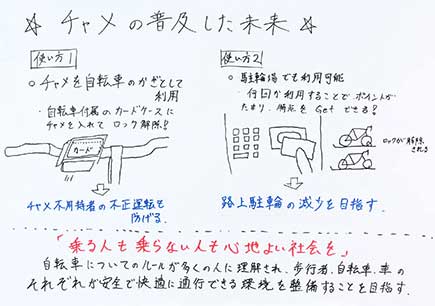 ☆ チャメの普及した未来 ☆
使い方1
○ チャメを自転車のかぎとして
利用
・自転車付属のカードケースに
チャメを入れて ロック解除!
カード
チャメ不所持者の不正運転を
防げる.
使い方2
○ 駐輪場でも利用可能
・何回か利用することで ポイントが
たまり、景品を Get できる!
ロックが解除
される
路上駐輪の減少を目指す.
「乗る人も乗らない人も心地よい社会を」
自転車についてのルールが多くの人に理解され、歩行者、自転車、車の
それぞれが安全で快適に通行できる環境を整備することを目指す.